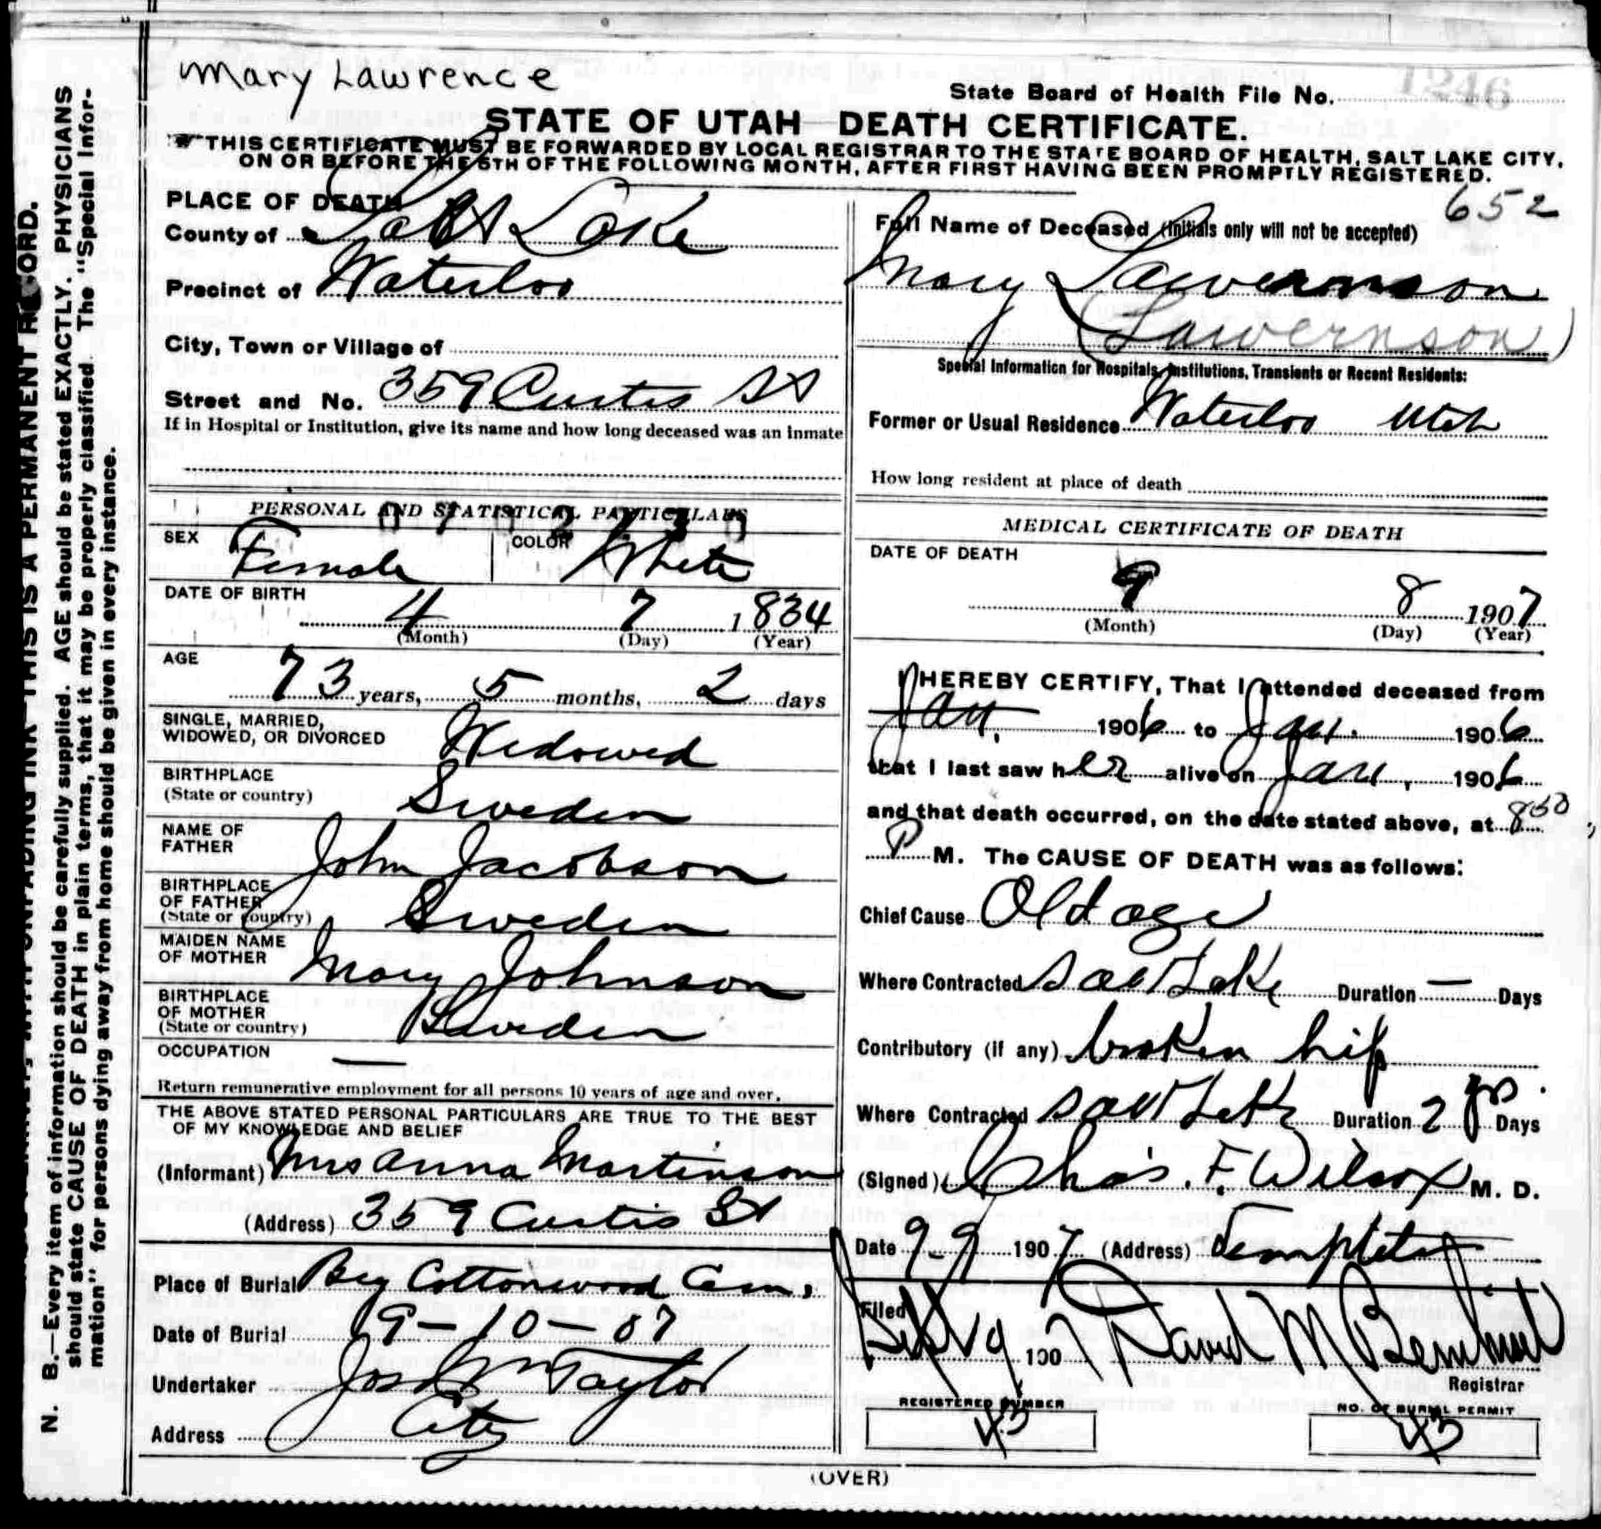 Mary Lawrence
State Board of Health File No. 1246
STATE OF UTAH—DEATH CERTIFICATE.
THIS CERTIFICATE MUST BE FORWARDED BY LOCAL REGISTRAR TO THE STATE BOARD OF HEALTH, SALT LAKE CITY,
ON OR BEFORE THE 5TH OF THE FOLLOWING MONTH, AFTER FIRST HAVING BEEN PROMPTLY REGISTERED.
652
PLACE OF DEATH
County of Salt Lake
Precinct of Waterloo
City, Town or Village of
Street and No. 359 Curtis St
If in Hospital or Institution, give its name and how long deceased was an inmate
PERSONAL AND STATISTICAL PARTICULARS
SEX Female COLOR White
DATE OF BIRTH 4 7 1834
(Month) (Day) (Year)
AGE 73 years, 5 months, 2 days
SINGLE, MARRIED,
WIDOWED, OR DIVORCED Widowed
BIRTHPLACE
(State or country) Sweden
NAME OF
FATHER John Jacobson
BIRTHPLACE
OF FATHER
(State or country) Sweden
MAIDEN NAME
OF MOTHER Mary Johnson
BIRTHPLACE
OF MOTHER
(State or country) Sweden
OCCUPATION —
Return remunerative employment for all persons 10 years of age and over.
THE ABOVE STATED PERSONAL PARTICULARS ARE TRUE TO THE BEST
OF MY KNOWLEDGE AND BELIEF
(Informant) Mrs Anna Martinson
(Address) 359 Curtis St
Place of Burial Big Cottonwood Cem,
Date of Burial 9-10-07
Undertaker Jos Wm Taylor
Address City
Full Name of Deceased (Initials only will not be accepted)
Mary Lawvernson
(Lawvernson)
Special Information for Hospitals, Institutions, Transients or Recent Residents:
Former or Usual Residence Waterloo Utah
How long resident at place of death
MEDICAL CERTIFICATE OF DEATH
DATE OF DEATH
9 8 1907
(Month) (Day) (Year)
I HEREBY CERTIFY, That I attended deceased from
Jan, 1906 to Jan. 1906
that I last saw her alive on Jan, 1906
and that death occurred, on the date stated above, at 8 50
P M. The CAUSE OF DEATH was as follows:
Chief Cause Old age
Where Contracted Salt Lake Duration — Days
Contributory (if any) broken hip
Where Contracted Salt Lake Duration 2 yrs. Days
(Signed) Chas. F. Wilcox M. D.
Date 9-9 1907 (Address) Templeton
Filed
Sept 9 1907 David M
Registrar
REGISTERED NUMBER
43
NO. OF BURIAL PERMIT
43
(OVER)
N. B.—Every item of information should be carefully supplied. AGE should be stated EXACTLY. PHYSICIANS
should state CAUSE OF DEATH in plain terms, that it may be properly classified. The "Special Infor-
mation" for persons dying away from home should be given in every instance.
UNFADING INK—THIS IS A PERMANENT RECORD.